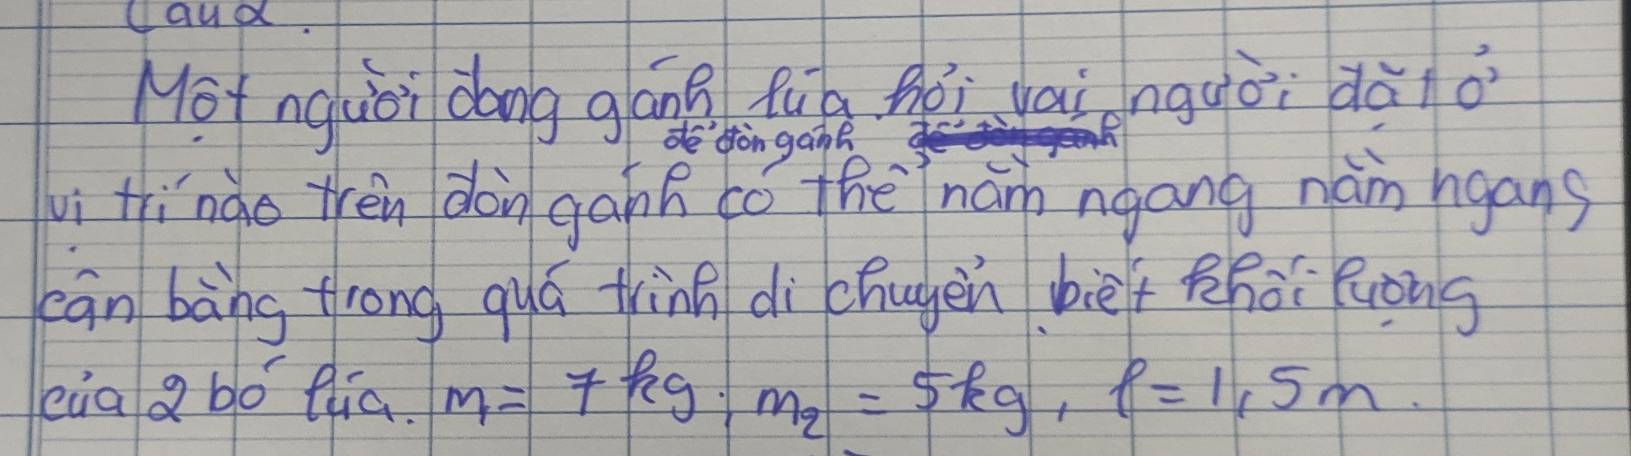 Một người đang gánh lúa hỏi vai người đặt ở
để đòn gánh
vị trí nào trên đòn gánh có thể nằm ngang nằm ngang
cân bằng trong quá trình di chuyển biết khối lượng
của 2 bó lúa. m₁ = 7 kg; m₂ = 5 kg, l = 1,5 m.